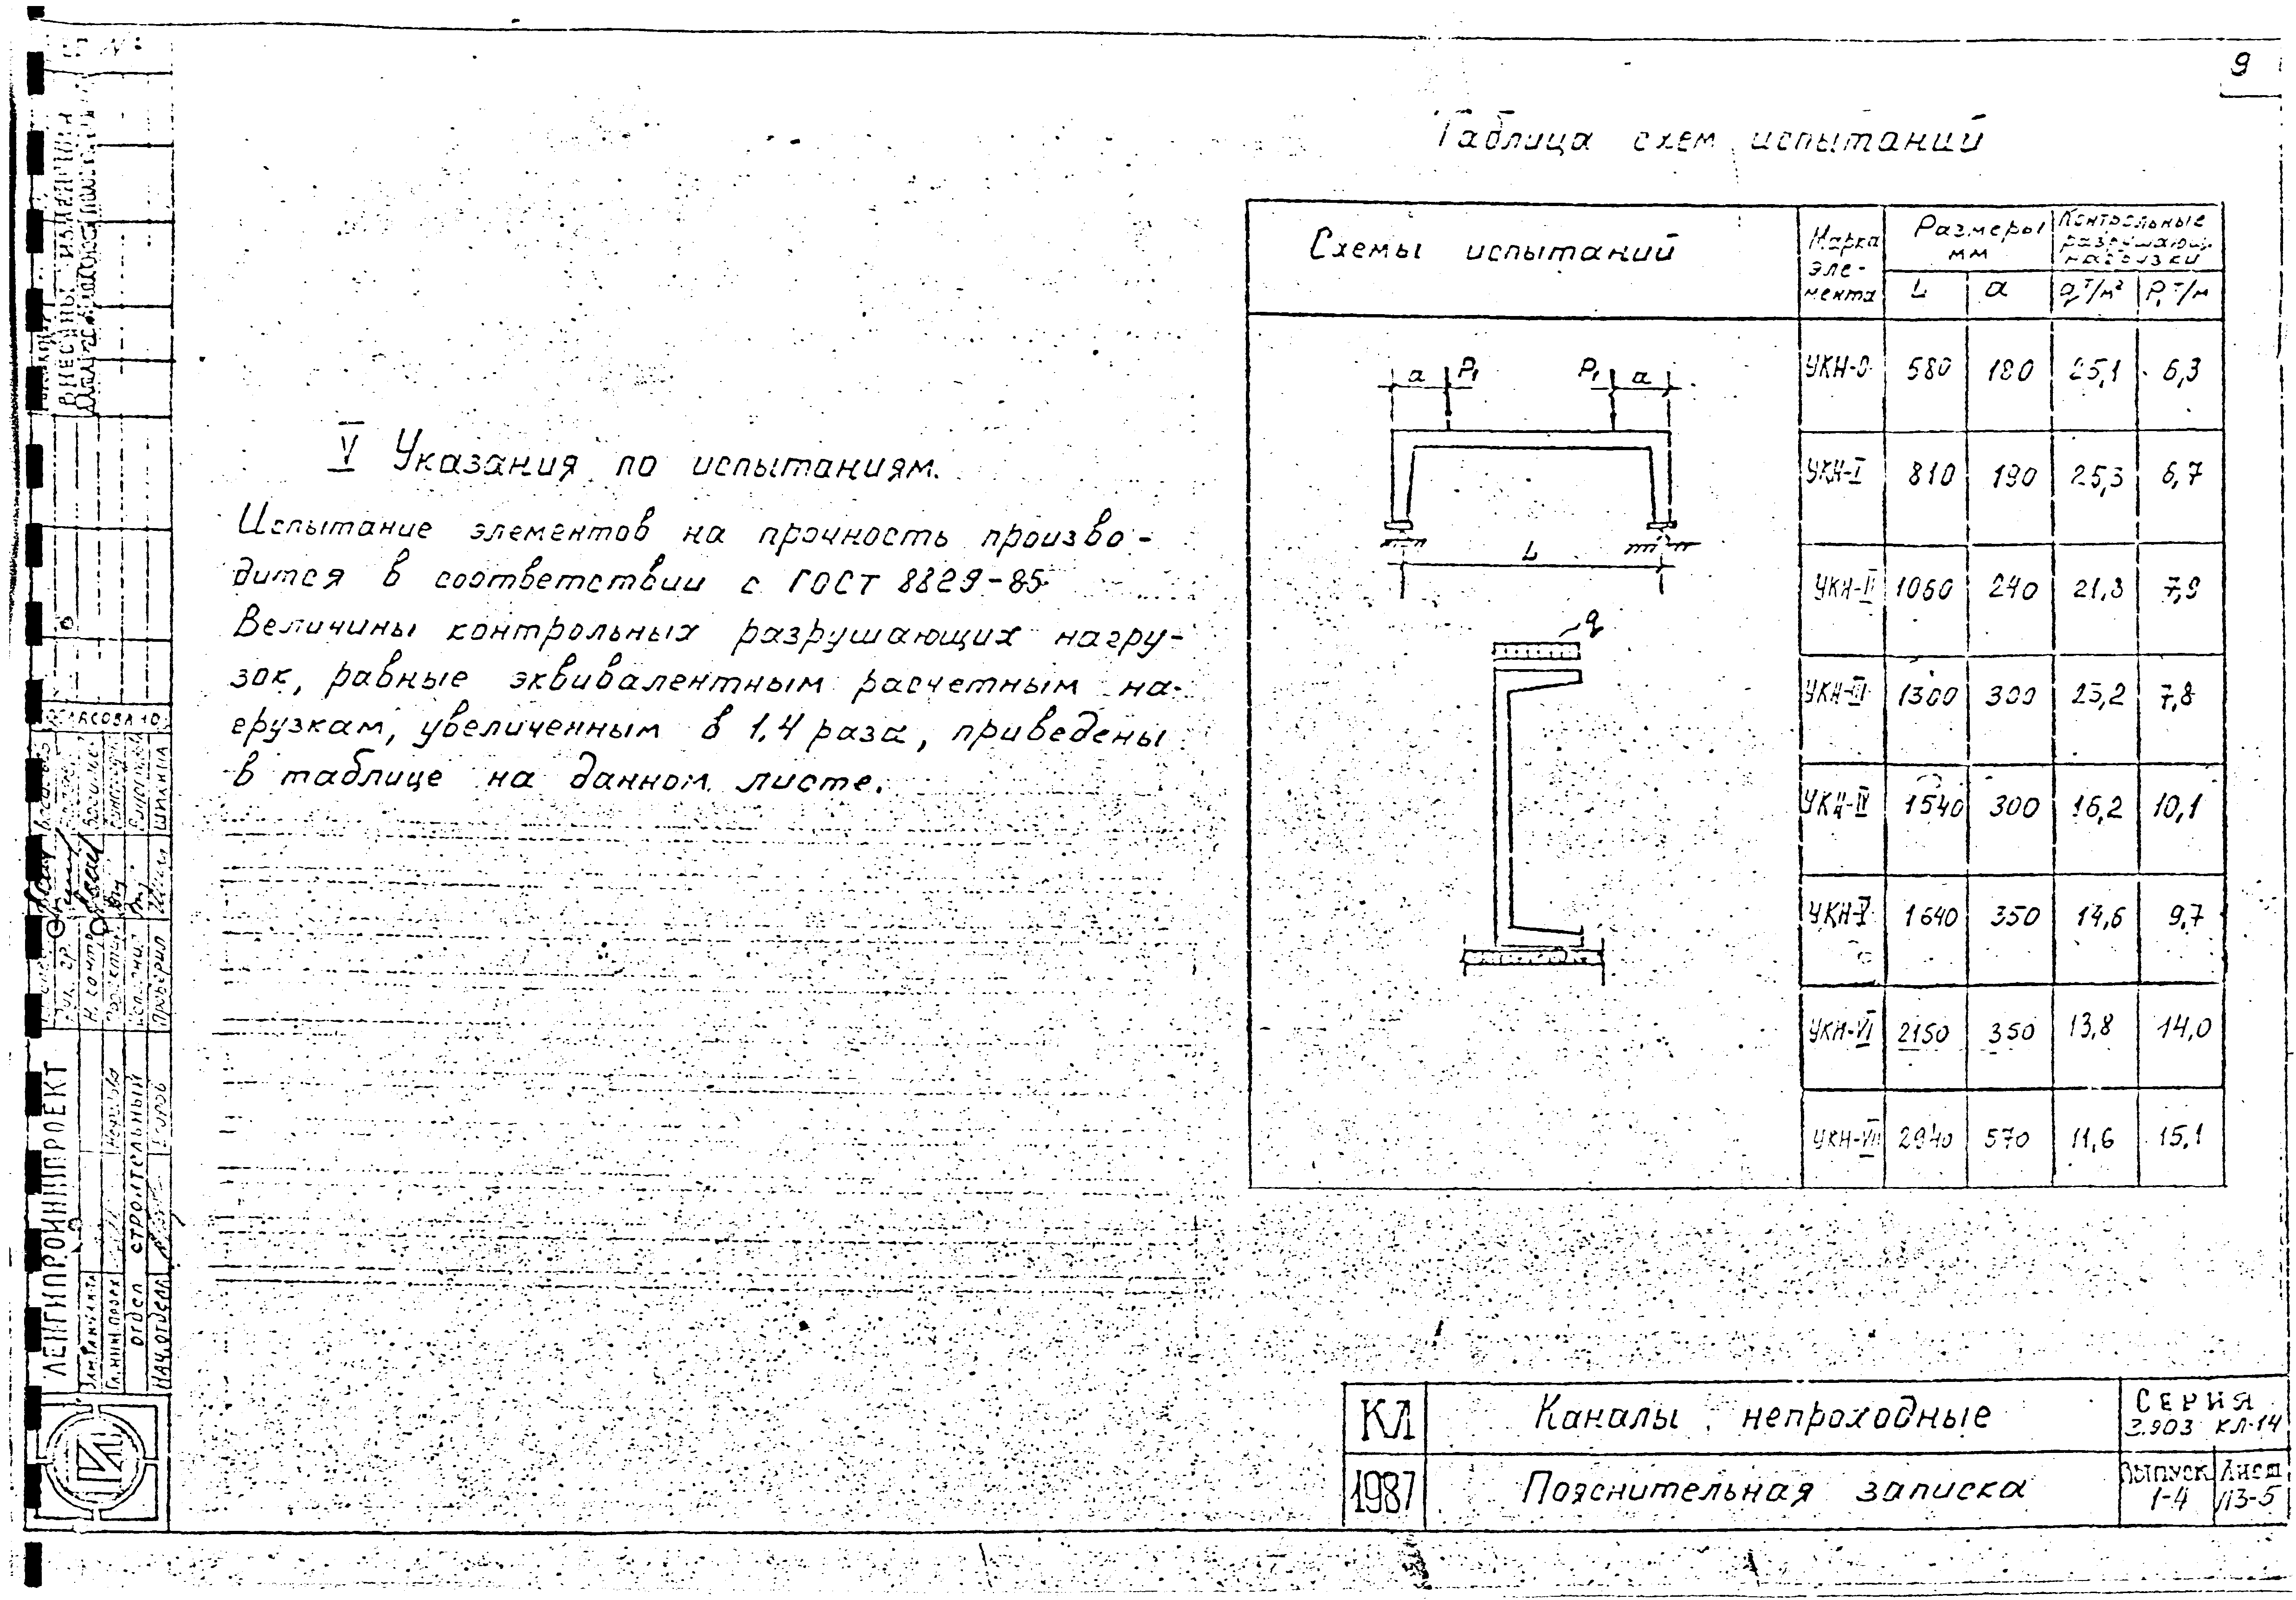 9
Таблица схем испытаний
V Указания по испытаниям.
Испытание элементов на прочность произво-
дится в соответствии с ГОСТ 8829-85
Величины контрольных разрушающих нагру-
зок, равные эквивалентным расчетным на-
грузкам, увеличенным в 1,4 раза, приведены
в таблице на данном листе.
Схемы испытаний
Марка
эле-
мента
Размеры
мм
Контрольные
разрушающ.
нагрузки
L a q т/м² P₁ т/м
a P₁ P₁ a
L
q
УКН-0 580 180 25,1 6,3
УКН-I 810 190 25,3 6,7
УКН-II 1060 240 21,8 7,9
УКН-III 1300 300 23,2 7,8
УКН-IV 1540 300 16,2 10,1
УКН-V 1640 350 14,6 9,7
УКН-VI 2150 350 13,8 14,0
УКН-VII 2940 570 11,6 15,1
КЛ Каналы непроходные СЕРИЯ
3.903 КЛ-14
1987 Пояснительная записка
Выпуск
1-4
Лист
ПЗ-5
ВНЕСЕНЫ ИЗМЕНЕНИЯ
СОГЛАСОВАНО
ЛЕНГИПРОИНЖПРОЕКТ
Гл.инж.проек
отдел строительный
Нач.отдела
Рук. гр.
Н. контр
Проверил
Шишкина